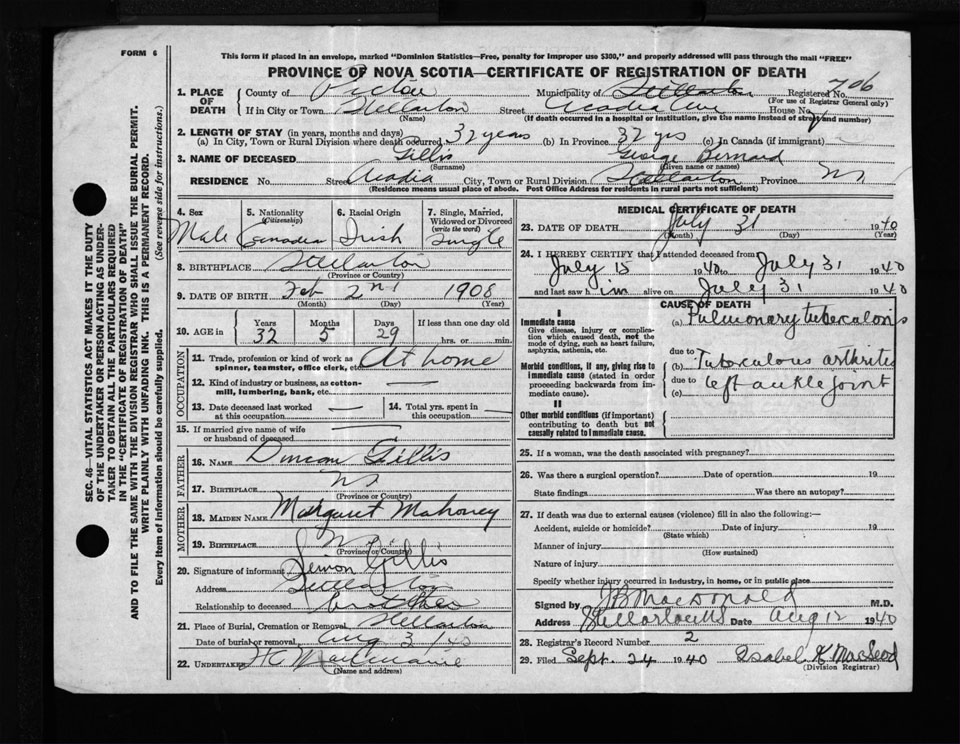 FORM 6
This form if placed in an envelope, marked "Dominion Statistics—Free, penalty for improper use $300," and properly addressed will pass through the mail "FREE"
PROVINCE OF NOVA SCOTIA—CERTIFICATE OF REGISTRATION OF DEATH
1. PLACE OF DEATH
County of Pictou Municipality of Registered No. 706
(For use of Registrar General only)
If in City or Town Stellarton Street Acadia Ave House No.
(Name) (If death occurred in a hospital or institution, give the name instead of street and number)
2. LENGTH OF STAY (in years, months and days)
(a) In City, Town or Rural Division where death occurred 32 years (b) In Province 32 yrs (c) In Canada (if immigrant)
3. NAME OF DECEASED Gillis George Bernard
(Surname) (Given name or names)
RESIDENCE No. Street Acadia City, Town or Rural Division Stellarton Province NS
(Residence means usual place of abode. Post Office Address for residents in rural parts not sufficient)
4. Sex Male
5. Nationality (Citizenship) Canadia
6. Racial Origin Irish
7. Single, Married, Widowed or Divorced (write the word) Single
8. BIRTHPLACE Stellarton
(Province or Country)
9. DATE OF BIRTH Feb 2nd 1908
(Month) (Day) (Year)
10. AGE in Years 32 Months 5 Days 29 If less than one day old hrs. or min.
OCCUPATION
11. Trade, profession or kind of work as spinner, teamster, office clerk, etc. At home
12. Kind of industry or business, as cotton-mill, lumbering, bank, etc. —
13. Date deceased last worked at this occupation — 14. Total yrs. spent in this occupation —
15. If married give name of wife or husband of deceased
FATHER
16. NAME Duncan Gillis
17. BIRTHPLACE NS
(Province or Country)
MOTHER
18. MAIDEN NAME Margaret Mahoney
19. BIRTHPLACE N
(Province or Country)
20. Signature of informant Simon Gillis
Address Stellarton
Relationship to deceased brother
21. Place of Burial, Cremation or Removal Stellarton
Date of burial or removal Aug 3/40
22. UNDERTAKER
(Name and address)
MEDICAL CERTIFICATE OF DEATH
23. DATE OF DEATH July 31 1940
(Month) (Day) (Year)
24. I HEREBY CERTIFY that I attended deceased from
July 15 1940 to July 31 1940
and last saw him alive on July 31 1940
CAUSE OF DEATH
I
Immediate cause
Give disease, injury or complication which caused death, not the mode of dying, such as heart failure, asphyxia, asthenia, etc.
(a) Pulmonary tuberculosis
due to
Morbid conditions, if any, giving rise to immediate cause (stated in order proceeding backwards from immediate cause).
(b) Tuberculous arthritis
due to left ankle joint
(c)
II
Other morbid conditions (if important) contributing to death but not causally related to immediate cause.
25. If a woman, was the death associated with pregnancy?
26. Was there a surgical operation? Date of operation 19
State findings Was there an autopsy?
27. If death was due to external causes (violence) fill in also the following:—
Accident, suicide or homicide? Date of injury 19
(State which)
Manner of injury
(How sustained)
Nature of injury
Specify whether injury occurred in industry, in home, or in public place
Signed by JB MacDonald M.D.
Address Stellarton NS Date Aug 12 1940
28. Registrar's Record Number 2
29. Filed Sept. 24 1940 Isabel K MacLeod
(Division Registrar)
SEC. 46—VITAL STATISTICS ACT MAKES IT THE DUTY
OF THE UNDERTAKER OR PERSON ACTING AS UNDER-
TAKER TO OBTAIN ALL THE PARTICULARS REQUIRED
IN THE "CERTIFICATE OF REGISTRATION OF DEATH"
AND TO FILE THE SAME WITH THE DIVISION REGISTRAR WHO SHALL ISSUE THE BURIAL PERMIT.
WRITE PLAINLY WITH UNFADING INK. THIS IS A PERMANENT RECORD.
Every item of information should be carefully supplied. (See reverse side for instructions.)